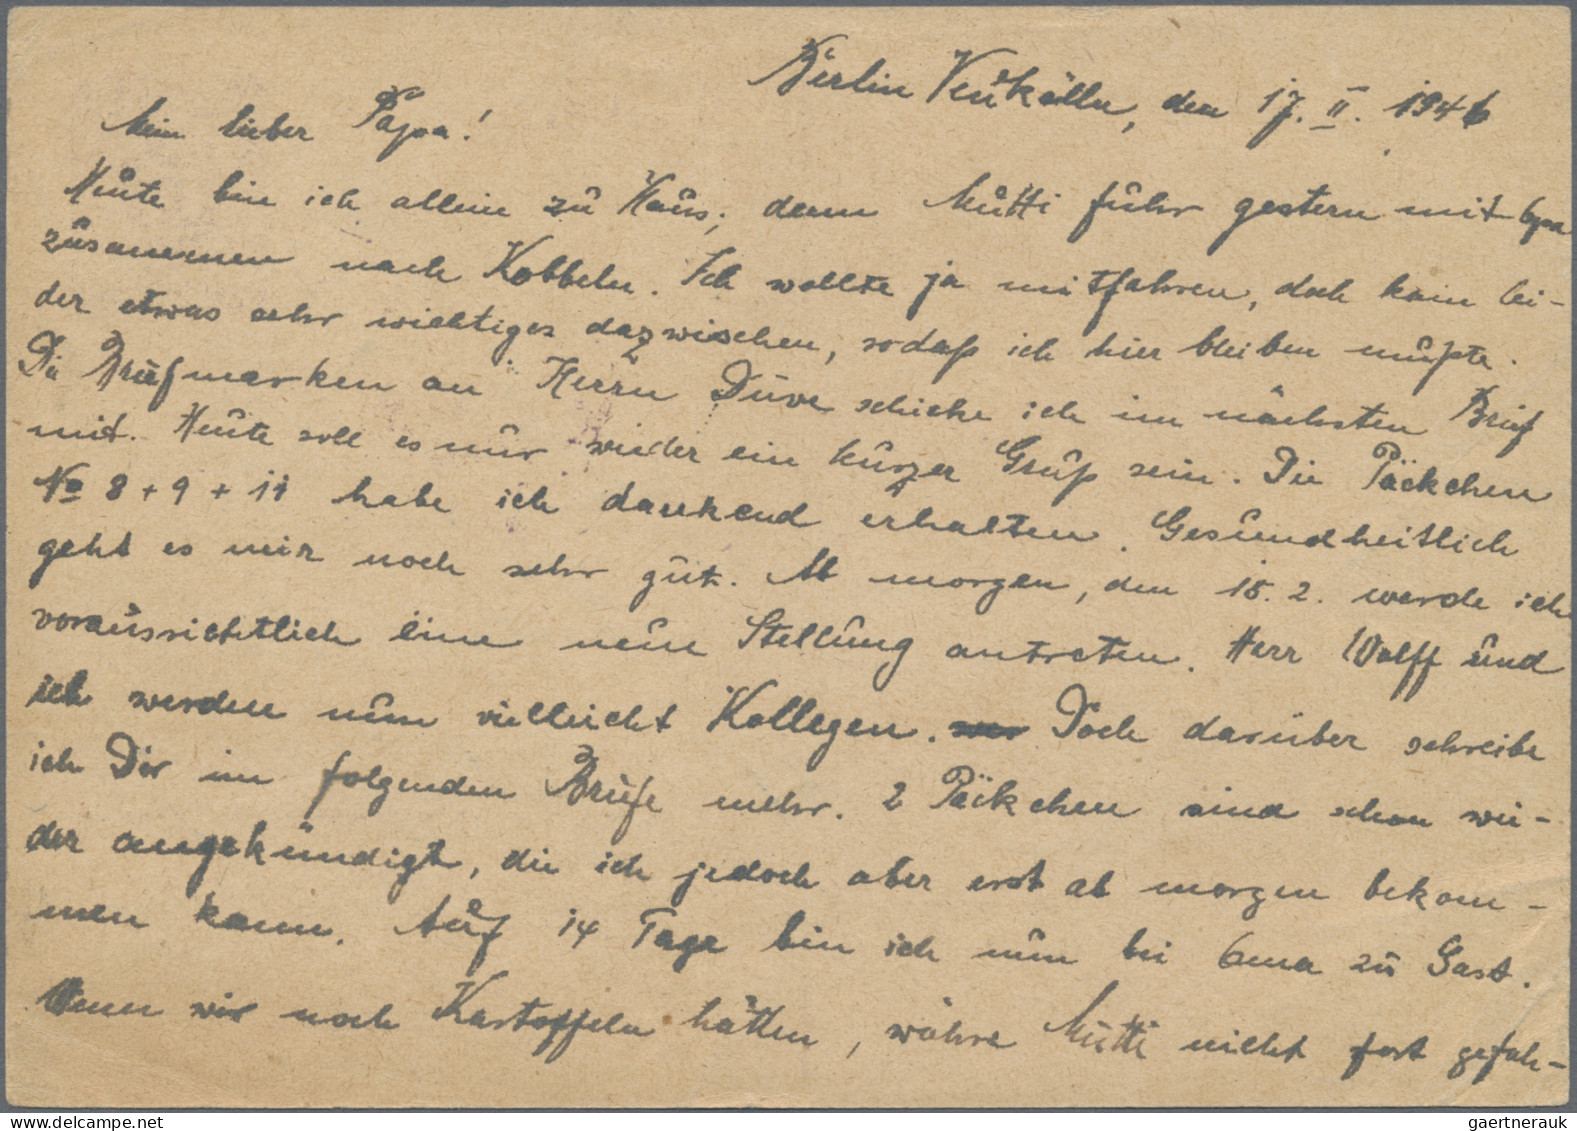 Berlin Neukölln, den 17. II. 1946
Mein lieber Papa!
Heute bin ich allein zu Haus, denn Mutti fuhr gestern mit Opa
zusammen nach Kobbeln. Ich wollte ja mitfahren, doch kam lei-
der etwas sehr wichtiges dazwischen, sodaß ich hier bleiben mußte.
Die Briefmarken an Herrn Duve schicke ich im nächsten Brief
mit. Heute soll es nur wieder ein kurzer Gruß sein. Die Päckchen
No 8 + 9 + 11 habe ich dankend erhalten. Gesundheitlich
geht es mir noch sehr gut. Ab morgen, den 18. 2. werde ich
voraussichtlich eine neue Stellung antreten. Herr Wolff und
ich werden nun vielleicht Kollegen. Doch darüber schreibe
ich Dir im folgenden Briefe mehr. 2 Päckchen sind schon wie-
der angekündigt, die ich jedoch aber erst ab morgen bekom-
men kann. Auf 14 Tage bin ich nun bei Oma zu Gast.
Wenn wir noch Kartoffeln hätten, währe Mutti nicht fort gefah-
gaertnerauk